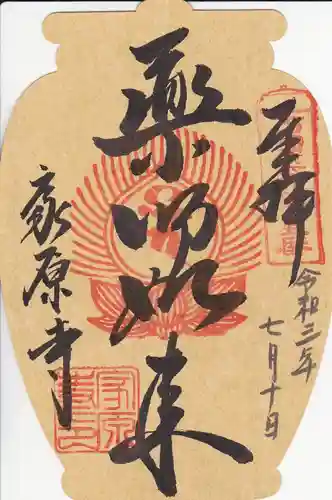 奉拝
令和三年
七月十日
薬師如来
家原寺